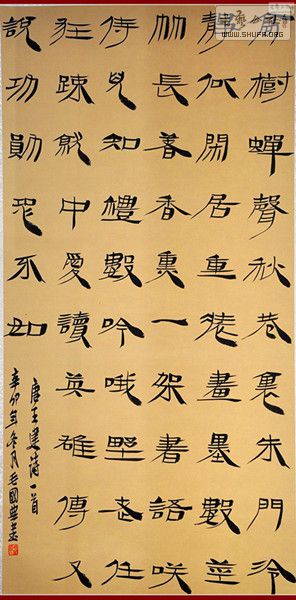 樹蟬聲秋巷裏朱門冷
靜似閑居重裝畫墨數莖
竹長着香熏一架書語咲
侍兒知禮數吟哦野老任
狂疎就中愛讀英雄傳又
說功勛恐不如
唐王建詩一首
辛卯年冬月毛國典書
WWW.SHUFA.ORG